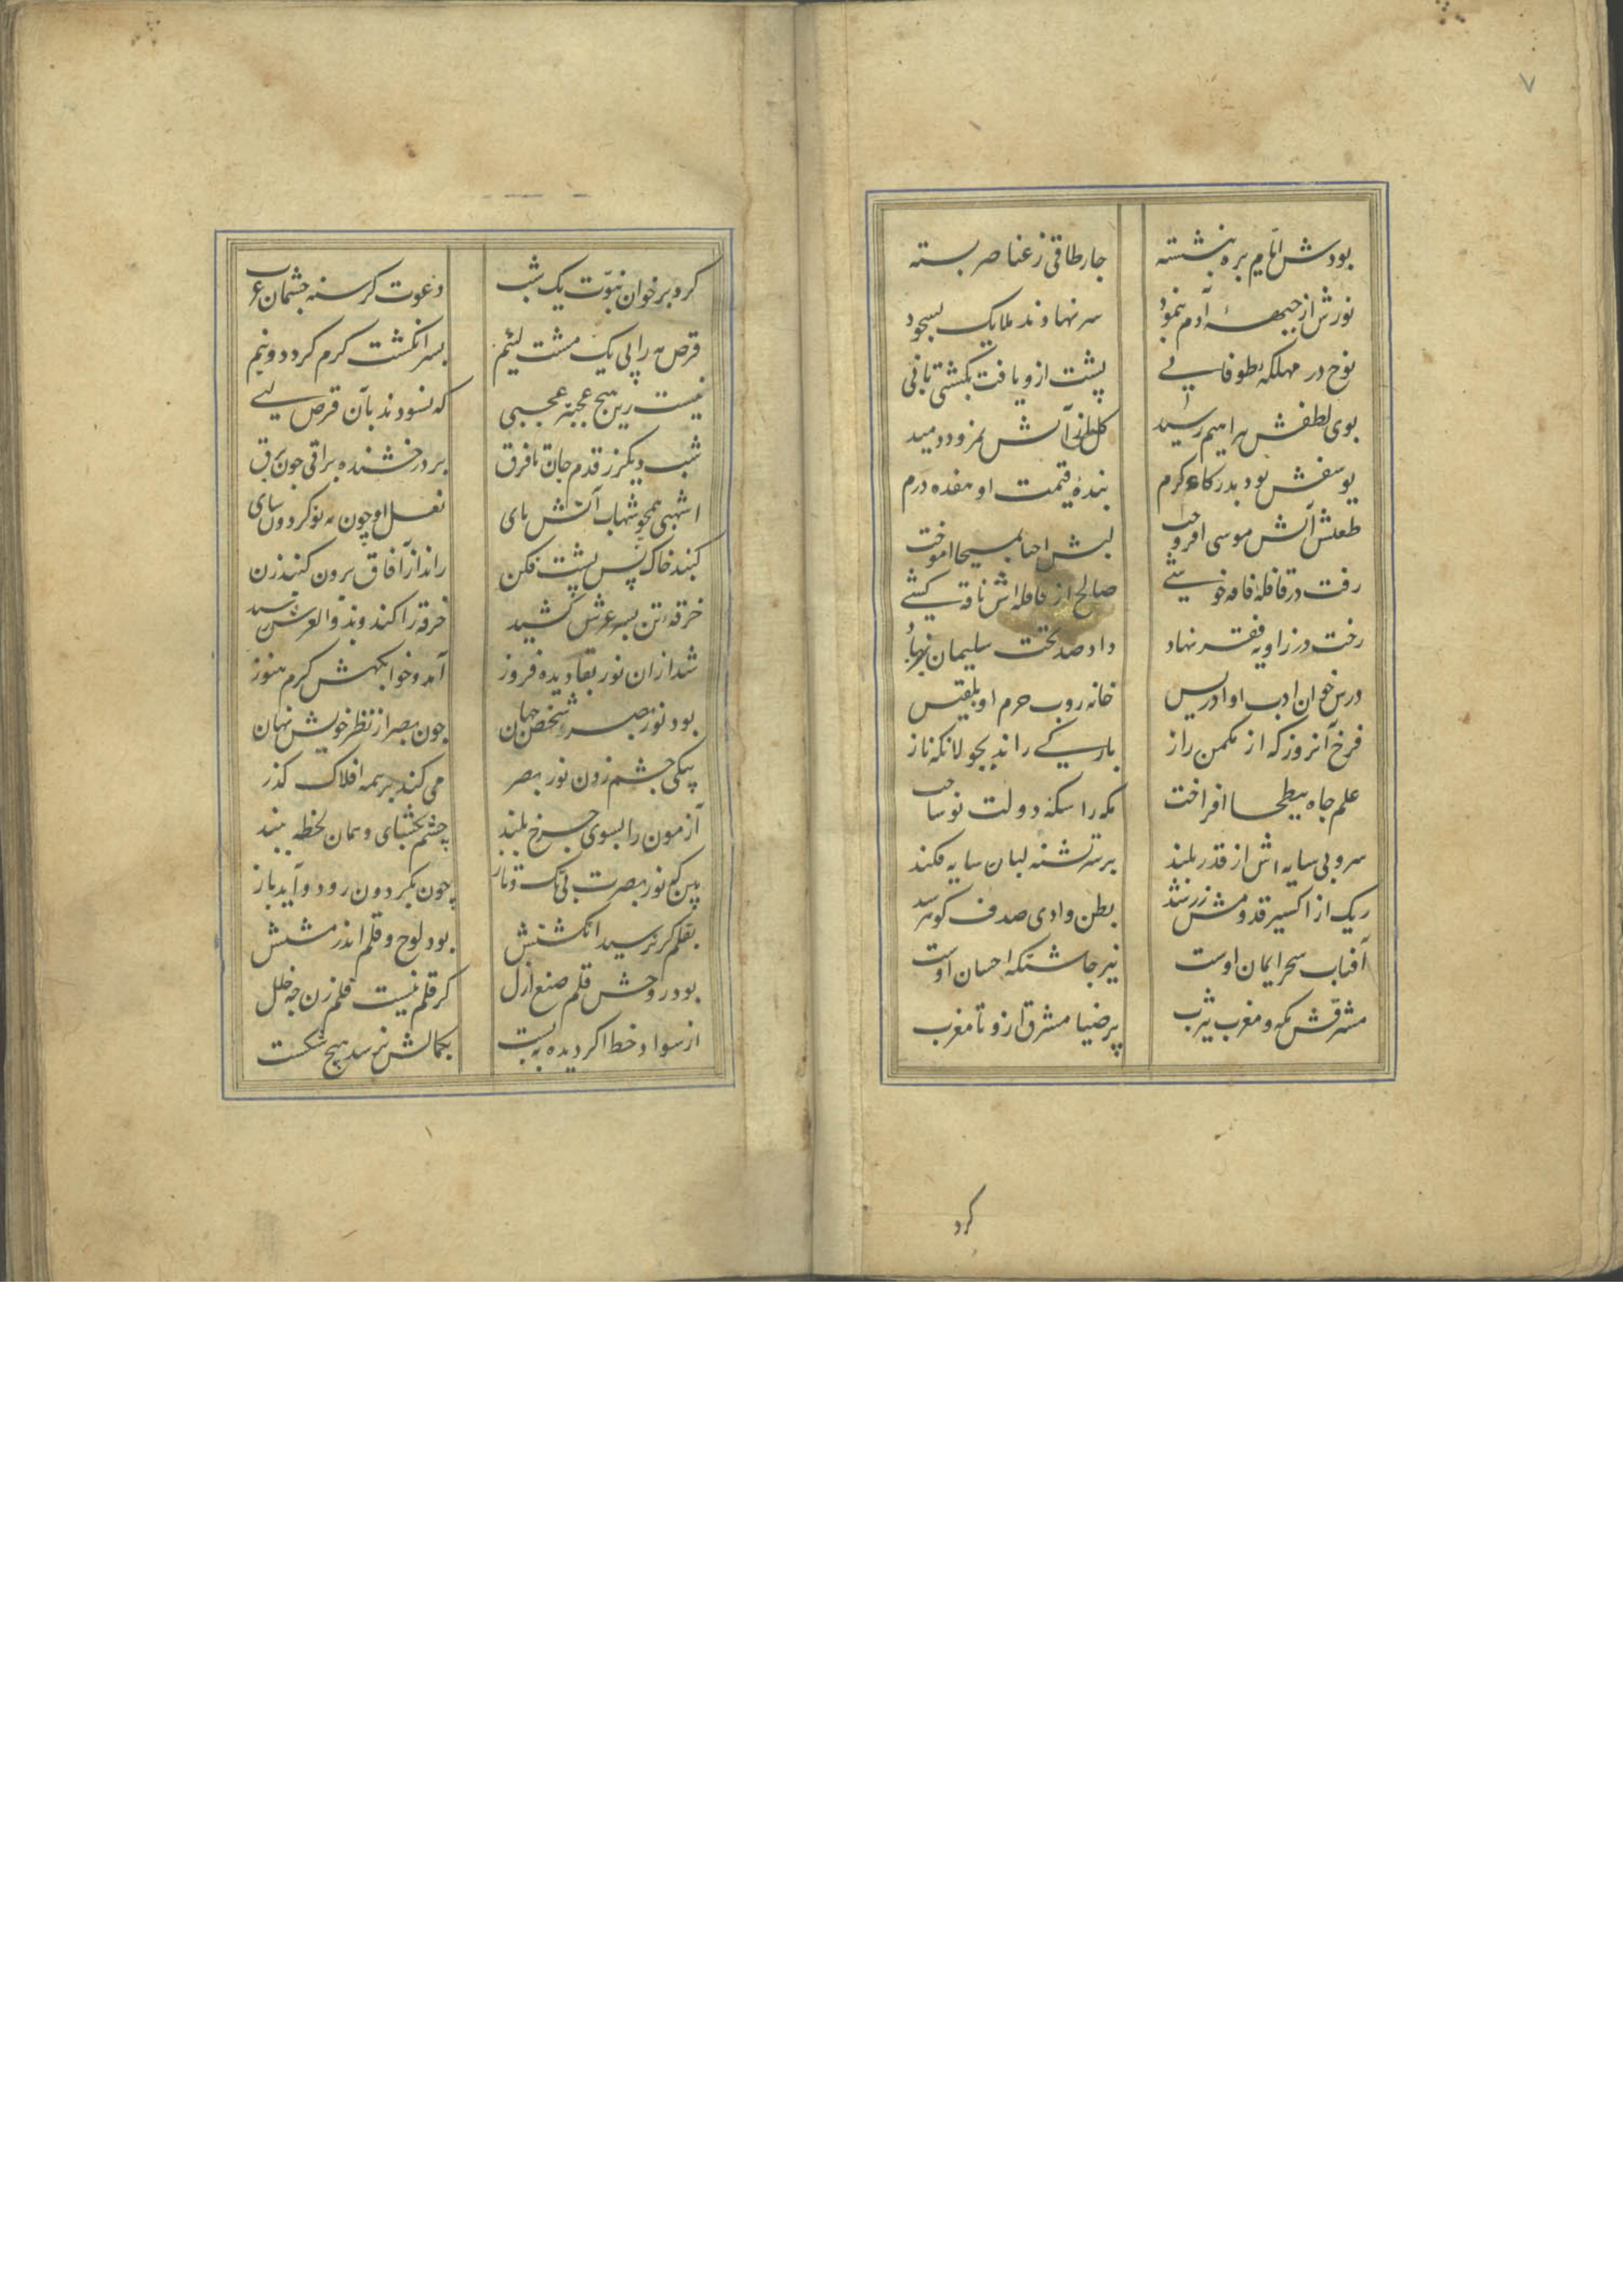 ۷
بودش ایام بره بنشسته چارطاقی ز عناصر بسته
نورش از جبههٔ آدم بنمود سر نهادند ملایک بسجود
نوح در مهلکه طوفانی پشت ازو یافت بکشتی بانی
بوی لطفش به براهیم رسید کلش از آتش نمرود دمید
یوسفش بود بدرکاه کرم بندهٔ قیمت او هفده درم
طعلتش آتش موسی افروخت لبش احیا بمسیحا آموخت
رفت در قافله فاقه خوشی صالح از قافله اش ناقه کشی
رخت در زاویه فقر نهاد داد صد تخت سلیمان برباد
درس خوان ادب او ادریس خانه روب حرم او بلقیس
فرخ آنروز که از مکمن راز بارگی راند بجولانکه ناز
علم جاه ببطحا افراخت مکه را سکهٔ دولت نو ساخت
سرو بی سایه اش از قدر بلند بر سر تشنه لبان سایه فکند
ریک از اکسیر قدومش زر شد بطن وادی صدف کوهر شد
آفتاب سحر ایمان اوست نیر چاشتکه احسان اوست
مشرقش مکه و مغرب یثرب پر ضیا مشرق ازو تا مغرب
کرد
کرد بر خوان نبوت یک شب دعوت کرسنه چشمان عرب
قرص مه را پی یک مشت لئیم بسر انکشت کرم کرد دو نیم
نیست زین هیچ عجبتر عجبی که نسودند بآن قرص لبی
شب دیکر ز قدم جان تا فرق بر درخشنده براقی چون برق
اشهبی همچو شهاب آتش پای نعل او چون مه نو کردون سای
کنبد خاک پس پشت فکن راند از آفاق برون کنبد زن
خرقه تن بسر عرش کشید خرقه را کند و بذو العرش رسید
شد از ان نور بقا دیده فروز آمد و خوابکهش کرم هنوز
بود نور بصر و شخص جهان چون بصر از نظر خویش نهان
بیکی چشم زدن نور بصر می کند بر همه افلاک کذر
آزمون را بسوی چرخ بلند چشم بکشای و همان لحظه ببند
بین که نور بصرت بی تک و تاز چون بکردون رود و آید باز
بقلم کر نرسید انکشتش بود لوح و قلم اندر مشتش
بود در وحش قلم صنع ازل کر قلم نیست قلم زن چه خلل
از سواد خط اکر دیده ببست بکمالش نرسد هیچ شکست